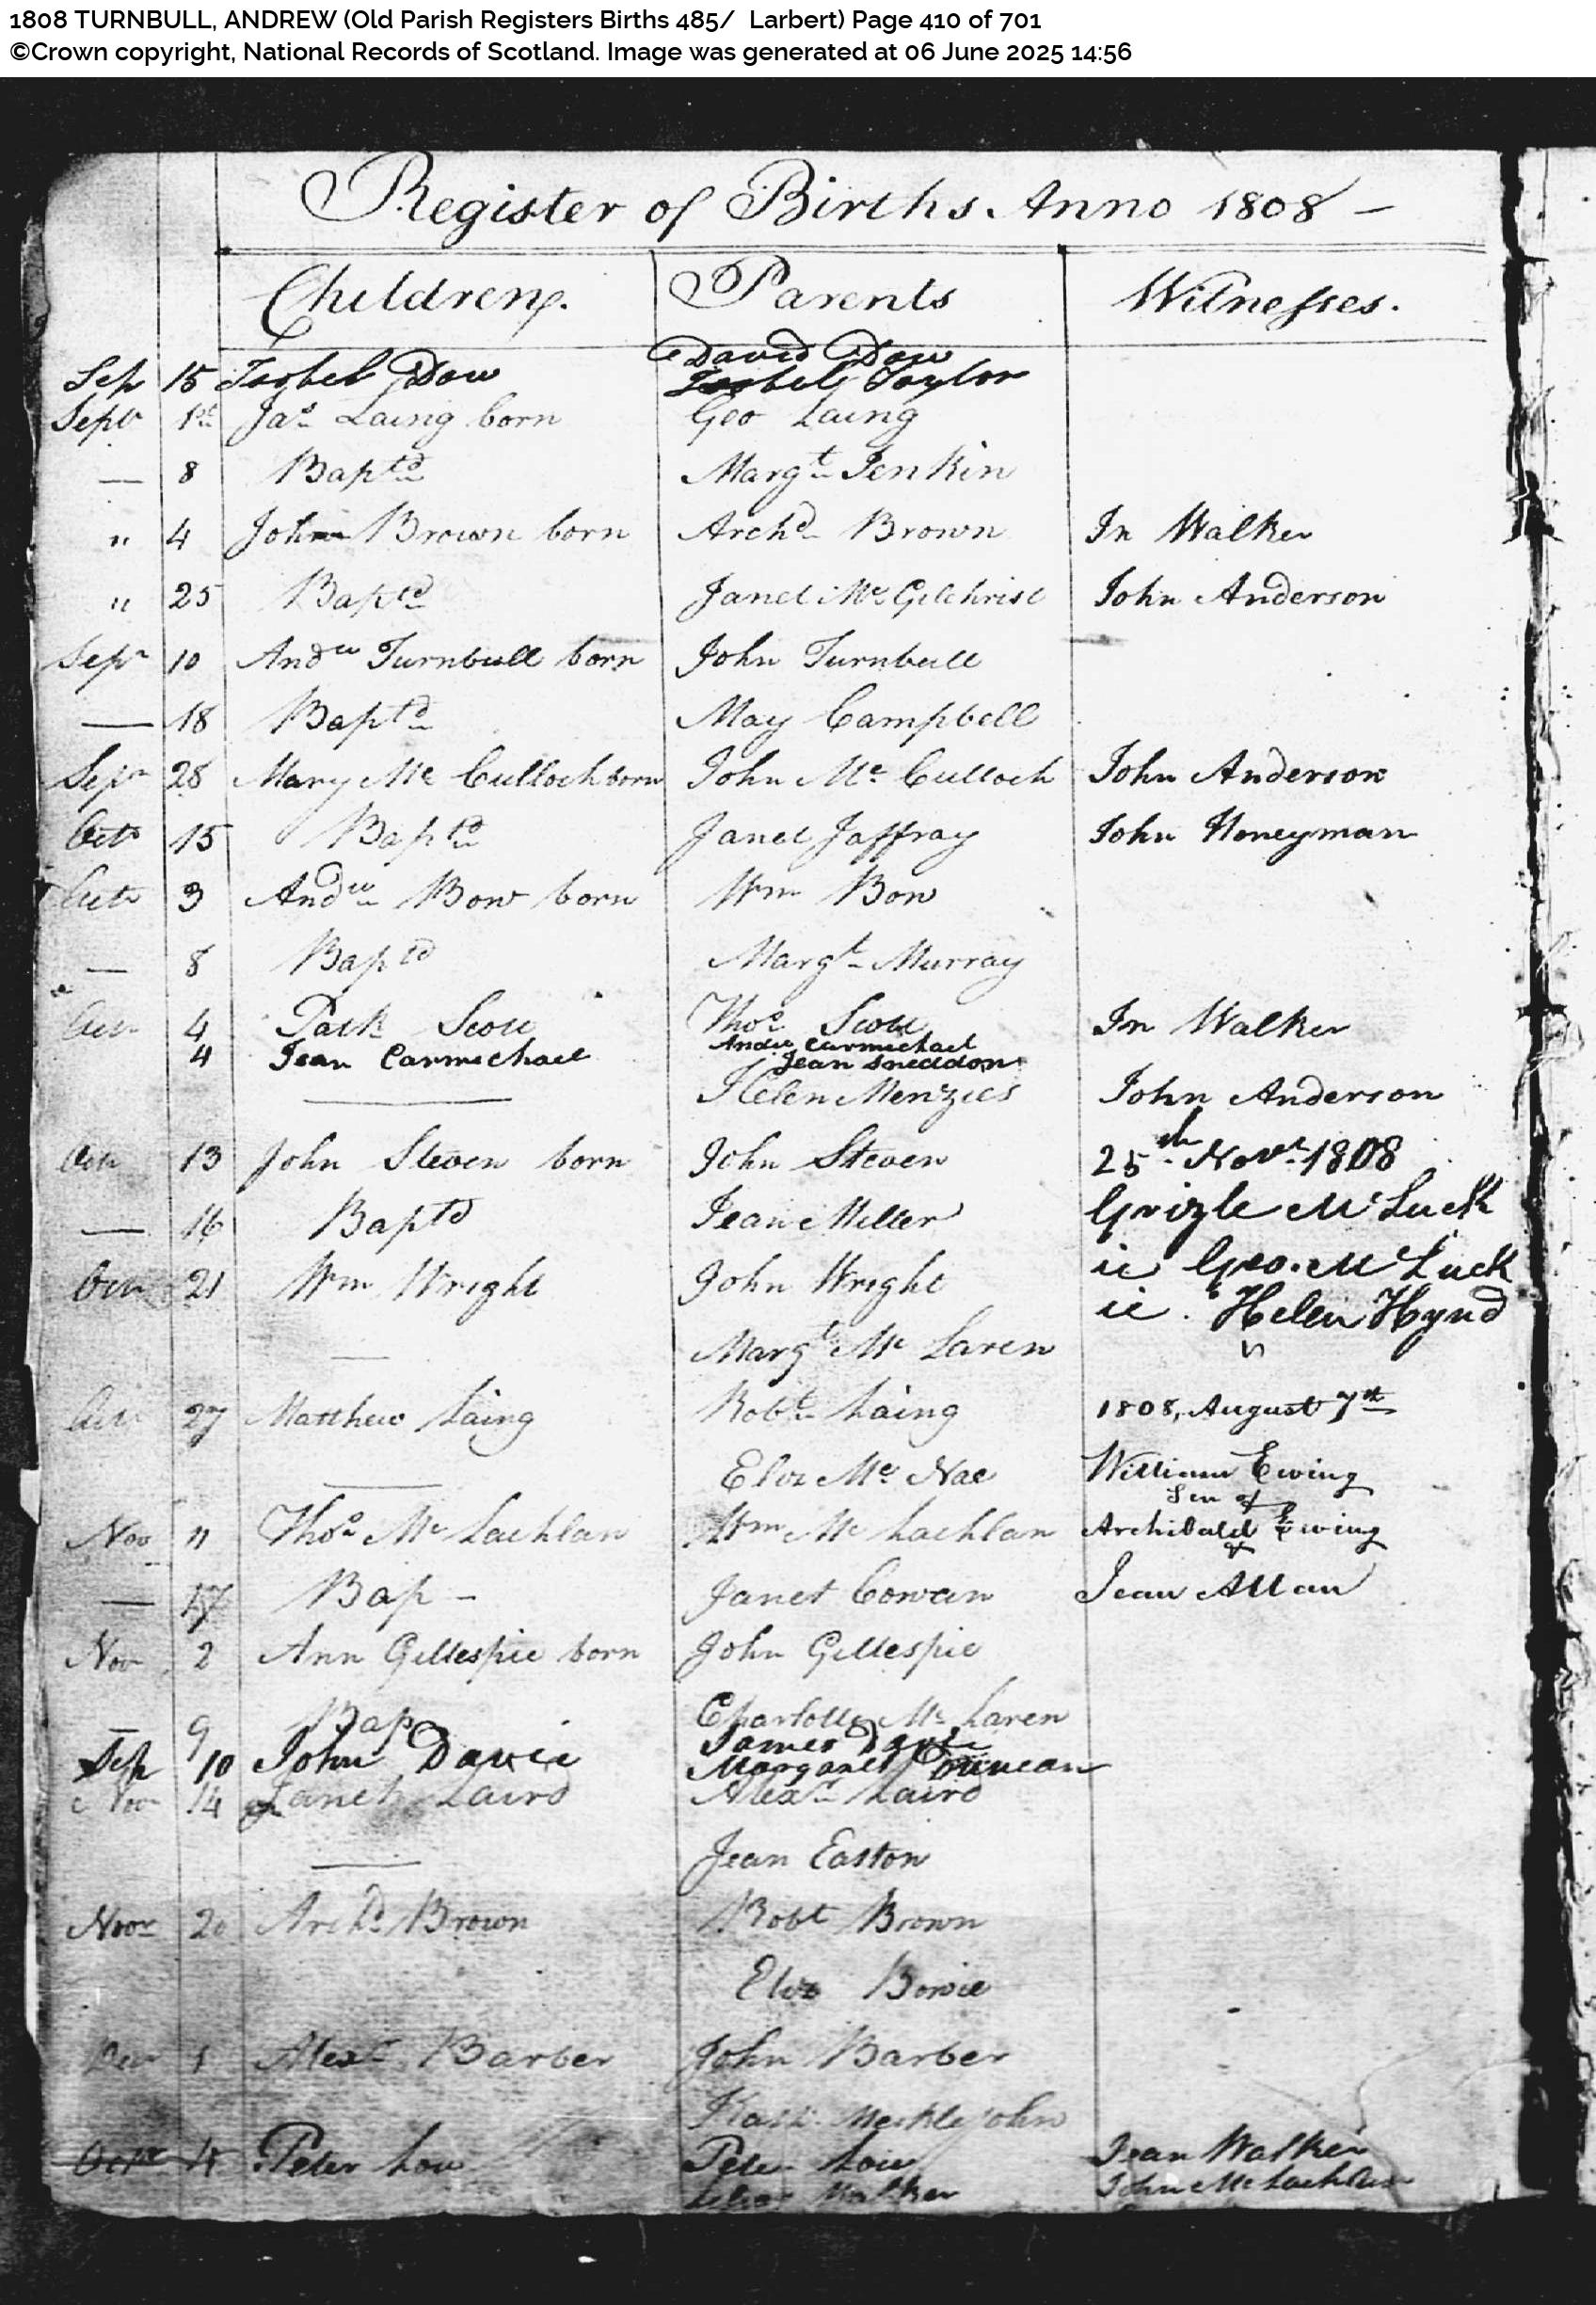 1808 TURNBULL, ANDREW (Old Parish Registers Births 485/ Larbert) Page 410 of 701
©Crown copyright, National Records of Scotland. Image was generated at 06 June 2025 14:56
Register of Births. Anno 1808 –
Children. Parents Witnesses.
David Dow
Sep 15 Isobel Dow Isobel Taylor
Septr 1st Jas Laing born Geo Laing
— 8 Baptd Margt Jenkin
" 4 John Brown born Archd Brown Jn Walker
" 25 Baptd Janet Mc Gilchrist John Anderson
Sepr 10 Andw Turnbull born John Turnbull
— 18 Baptd May Campbell
Sepr 28 Mary Mc Culloch born John Mc Culloch John Anderson
Octr 15 Baptd Janet Jaffray John Honeyman
Octr 3 Andw Bow born Wm Bow
— 8 Baptd Margt Murray
Octr 4 Patk Scott Thos Scott Jn Walker
4 Jean Carmichael Andw Carmichael
Jean Sneddon
— Helen Menzies John Anderson
Octr 13 John Steven born John Steven 25th Novr 1808
— 16 Baptd Jean Miller Grizle Mc Luck
Octr 21 Wm Wright John Wright ie Geo. Mc Luck
ie. Helen Hynd
— Margt Mc Laren
Octr 27 Matthew Laing Robt Laing 1808, August 7th
— Eliz Mc Nae William Ewing
Son of
Nov 11 Thos Mc Lachlan Wm Mc Lachlan Archibald Ewing
&
— 17 Bap – Janet Cowan Jean Allan
Nov 2 Ann Gillespie born John Gillespie
— 9 Bap Charlotte Mc Laren
James Davie
Sep 10 John Davie Margaret Duncan
Nov 14 Janet Laird Alexr Laird
— Jean Easton
Novr 20 Archd Brown Robt Brown
Eliz Bowie
Decr 1 Alexr Barber John Barber
Kath. Meiklejohn
Octr 4 Peter Low Peter Low Jean Walker
Walker John Mc Lachlan